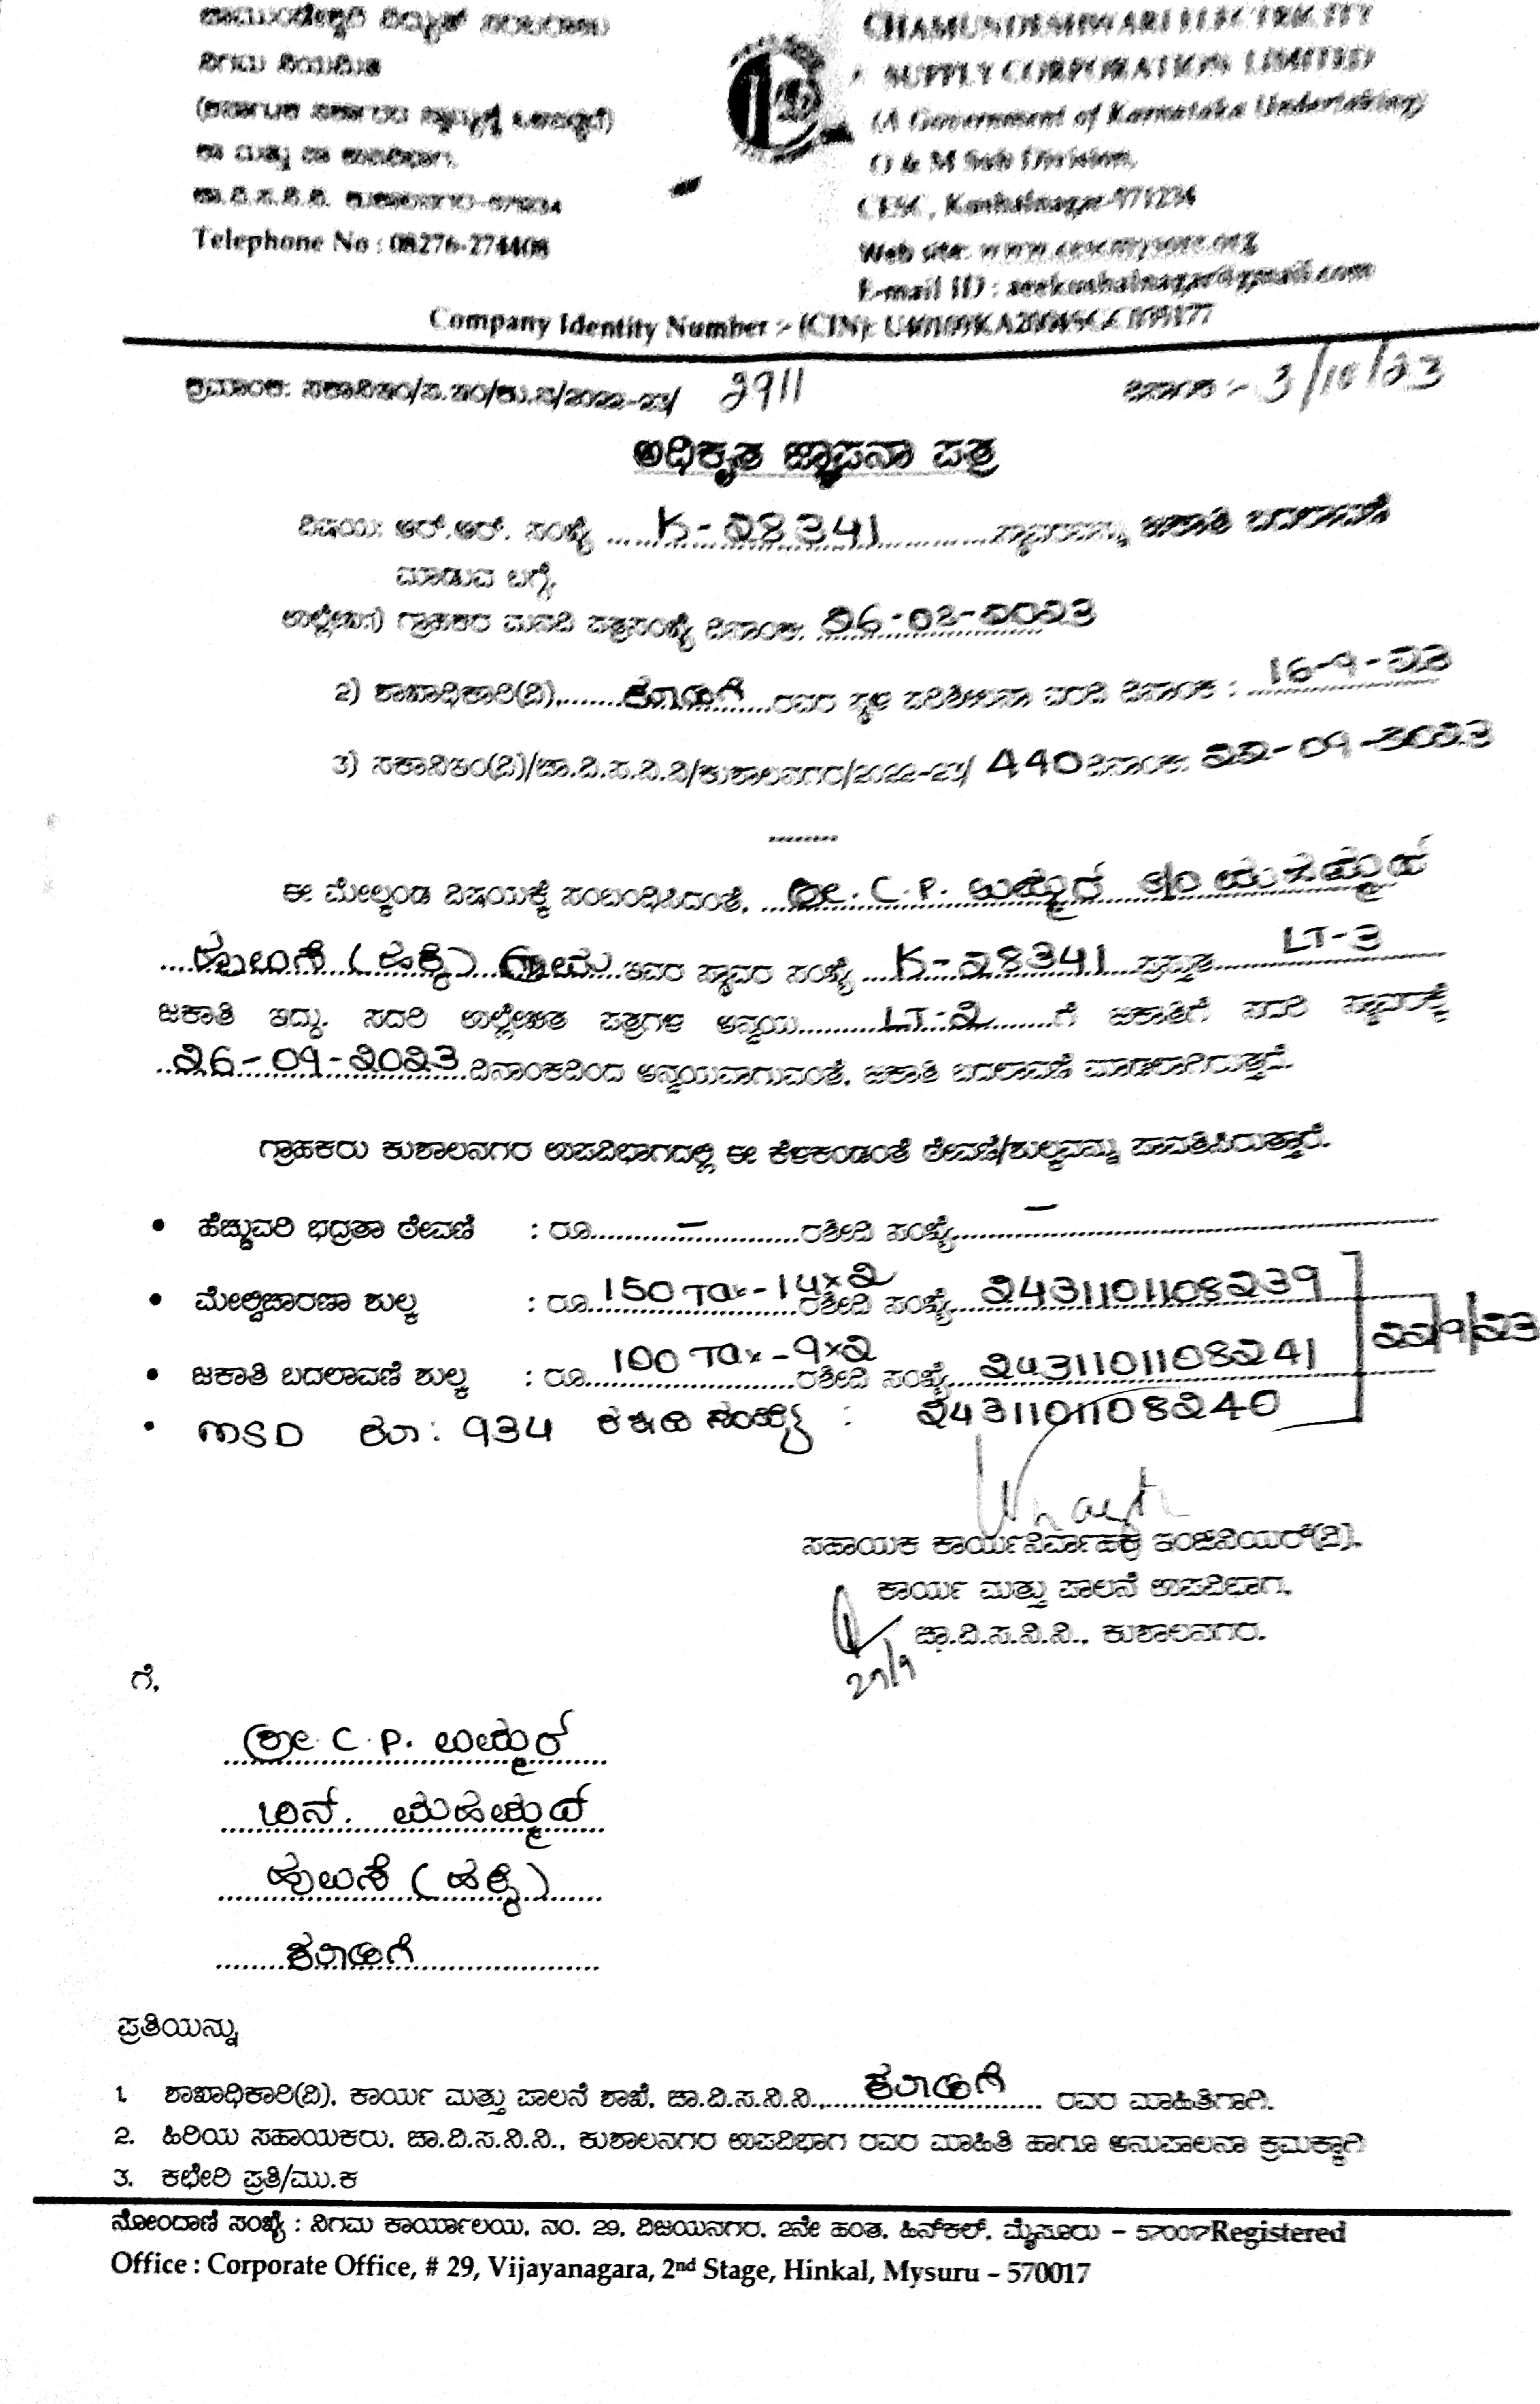 ಚಾಮುಂಡೇಶ್ವರಿ ವಿದ್ಯುತ್ ಸರಬರಾಜು
ನಿಗಮ ನಿಯಮಿತ
(ಕರ್ನಾಟಕ ಸರ್ಕಾರದ ಸ್ವಾಮ್ಯಕ್ಕೆ ಒಳಪಟ್ಟಿದೆ)
ಕಾ ಮತ್ತು ಪಾ ಉಪವಿಭಾಗ,
ಚಾ.ವಿ.ಸ.ನಿ.ನಿ. ಕುಶಾಲನಗರ-571234
Telephone No : 08276-274408
CHAMUNDESHWARI ELECTRICITY
SUPPLY CORPORATION LIMITED
(A Government of Karnataka Undertaking)
O & M Sub Division,
CESC, Kushalnagar-571234
Web site: www.cescmysore.org
E-mail ID : aeekushalnagar@gmail.com
Company Identity Number :- (CIN):
ಕ್ರಮಾಂಕ: ಸಕಾನಿಇಂ/ಸ.ಇಂ/ಕು.ನ/2022-23/ 2911 ದಿನಾಂಕ :- 3/10/23
ಅಧಿಕೃತ ಜ್ಞಾಪನಾ ಪತ್ರ
ವಿಷಯ: ಆರ್.ಆರ್. ಸಂಖ್ಯೆ ......K-28341............ಸ್ಥಾವರವನ್ನು ಜಕಾತಿ ಬದಲಾವಣೆ
ಮಾಡುವ ಬಗ್ಗೆ.
ಉಲ್ಲೇಖ:1) ಗ್ರಾಹಕರ ಮನವಿ ಪತ್ರಸಂಖ್ಯೆ ದಿನಾಂಕ: 06-02-2023
2) ಶಾಖಾಧಿಕಾರಿ(ವಿ).......ಕೂಡಿಗೆ.....ರವರ ಸ್ಥಳ ಪರಿಶೀಲನಾ ವರದಿ ದಿನಾಂಕ : 16-9-23
3) ಸಕಾನಿಇಂ(ವಿ)/ಚಾ.ವಿ.ಸ.ನಿ.ನಿ/ಕುಶಾಲನಗರ/2022-23/ 440 ದಿನಾಂಕ: 22-09-2023
--------
ಈ ಮೇಲ್ಕಂಡ ವಿಷಯಕ್ಕೆ ಸಂಬಂಧಿಸಿದಂತೆ, ......ಶ್ರೀ. C.P. ಉಮ್ಮರ್
ಹುಲುಸೆ (ಹಕ್ಕೆ) ಗ್ರಾಮ....ಇವರ ಸ್ಥಾವರ ಸಂಖ್ಯೆ ....K-28341....ಪ್ರಸ್ತುತ......LT-3
ಜಕಾತಿ ಇದ್ದು, ಸದರಿ ಉಲ್ಲೇಖಿತ ಪತ್ರಗಳ ಅನ್ವಯ.........LT-2........ಗೆ ಜಕಾತಿಗೆ ಸದರಿ ಸ್ಥಾವರಕ್ಕೆ
..26-09-2023..ದಿನಾಂಕದಿಂದ ಅನ್ವಯವಾಗುವಂತೆ, ಜಕಾತಿ ಬದಲಾವಣೆ ಮಾಡಲಾಗಿರುತ್ತದೆ.
ಗ್ರಾಹಕರು ಕುಶಾಲನಗರ ಉಪವಿಭಾಗದಲ್ಲಿ ಈ ಕೆಳಕಂಡಂತೆ ಠೇವಣಿ/ಶುಲ್ಕವನ್ನು ಪಾವತಿಸಿರುತ್ತಾರೆ.
• ಹೆಚ್ಚುವರಿ ಭದ್ರತಾ ಠೇವಣಿ : ರೂ..........–..........ರಶೀದಿ ಸಂಖ್ಯೆ........–........
• ಮೇಲ್ವಿಚಾರಣಾ ಶುಲ್ಕ : ರೂ. 150 Tax-14x2 ರಶೀದಿ ಸಂಖ್ಯೆ 2431101108239
• ಜಕಾತಿ ಬದಲಾವಣೆ ಶುಲ್ಕ : ರೂ. 100 Tax-9x2 ರಶೀದಿ ಸಂಖ್ಯೆ 2431101108241 22/9/23
• MSD ರೂ: 934 ರಶೀದಿ ಸಂಖ್ಯೆ : 2431101108240
ಸಹಾಯಕ ಕಾರ್ಯನಿರ್ವಾಹಕ ಇಂಜಿನಿಯರ್(ವಿ),
ಕಾರ್ಯ ಮತ್ತು ಪಾಲನೆ ಉಪವಿಭಾಗ,
ಚಾ.ವಿ.ಸ.ನಿ.ನಿ., ಕುಶಾಲನಗರ.
29/9
ಗೆ,
ಶ್ರೀ. C.P. ಉಮ್ಮರ್
ಬಿನ್. ಮಹಮ್ಮದ್
ಹುಲುಸೆ (ಹಕ್ಕೆ)
ಕೂಡಿಗೆ
ಪ್ರತಿಯನ್ನು
1. ಶಾಖಾಧಿಕಾರಿ(ವಿ), ಕಾರ್ಯ ಮತ್ತು ಪಾಲನೆ ಶಾಖೆ, ಚಾ.ವಿ.ಸ.ನಿ.ನಿ.,.....ಕೂಡಿಗೆ..... ರವರ ಮಾಹಿತಿಗಾಗಿ.
2. ಹಿರಿಯ ಸಹಾಯಕರು, ಚಾ.ವಿ.ಸ.ನಿ.ನಿ., ಕುಶಾಲನಗರ ಉಪವಿಭಾಗ ರವರ ಮಾಹಿತಿ ಹಾಗೂ ಅನುಪಾಲನಾ ಕ್ರಮಕ್ಕಾಗಿ
3. ಕಛೇರಿ ಪ್ರತಿ/ಮು.ಕ
ನೋಂದಾಣಿ ಸಂಖ್ಯೆ : ನಿಗಮ ಕಾರ್ಯಾಲಯ, ನಂ. 29, ವಿಜಯನಗರ, 2ನೇ ಹಂತ, ಹಿನ್‌ಕಲ್, ಮೈಸೂರು – 570017 Registered
Office : Corporate Office, # 29, Vijayanagara, 2nd Stage, Hinkal, Mysuru – 570017